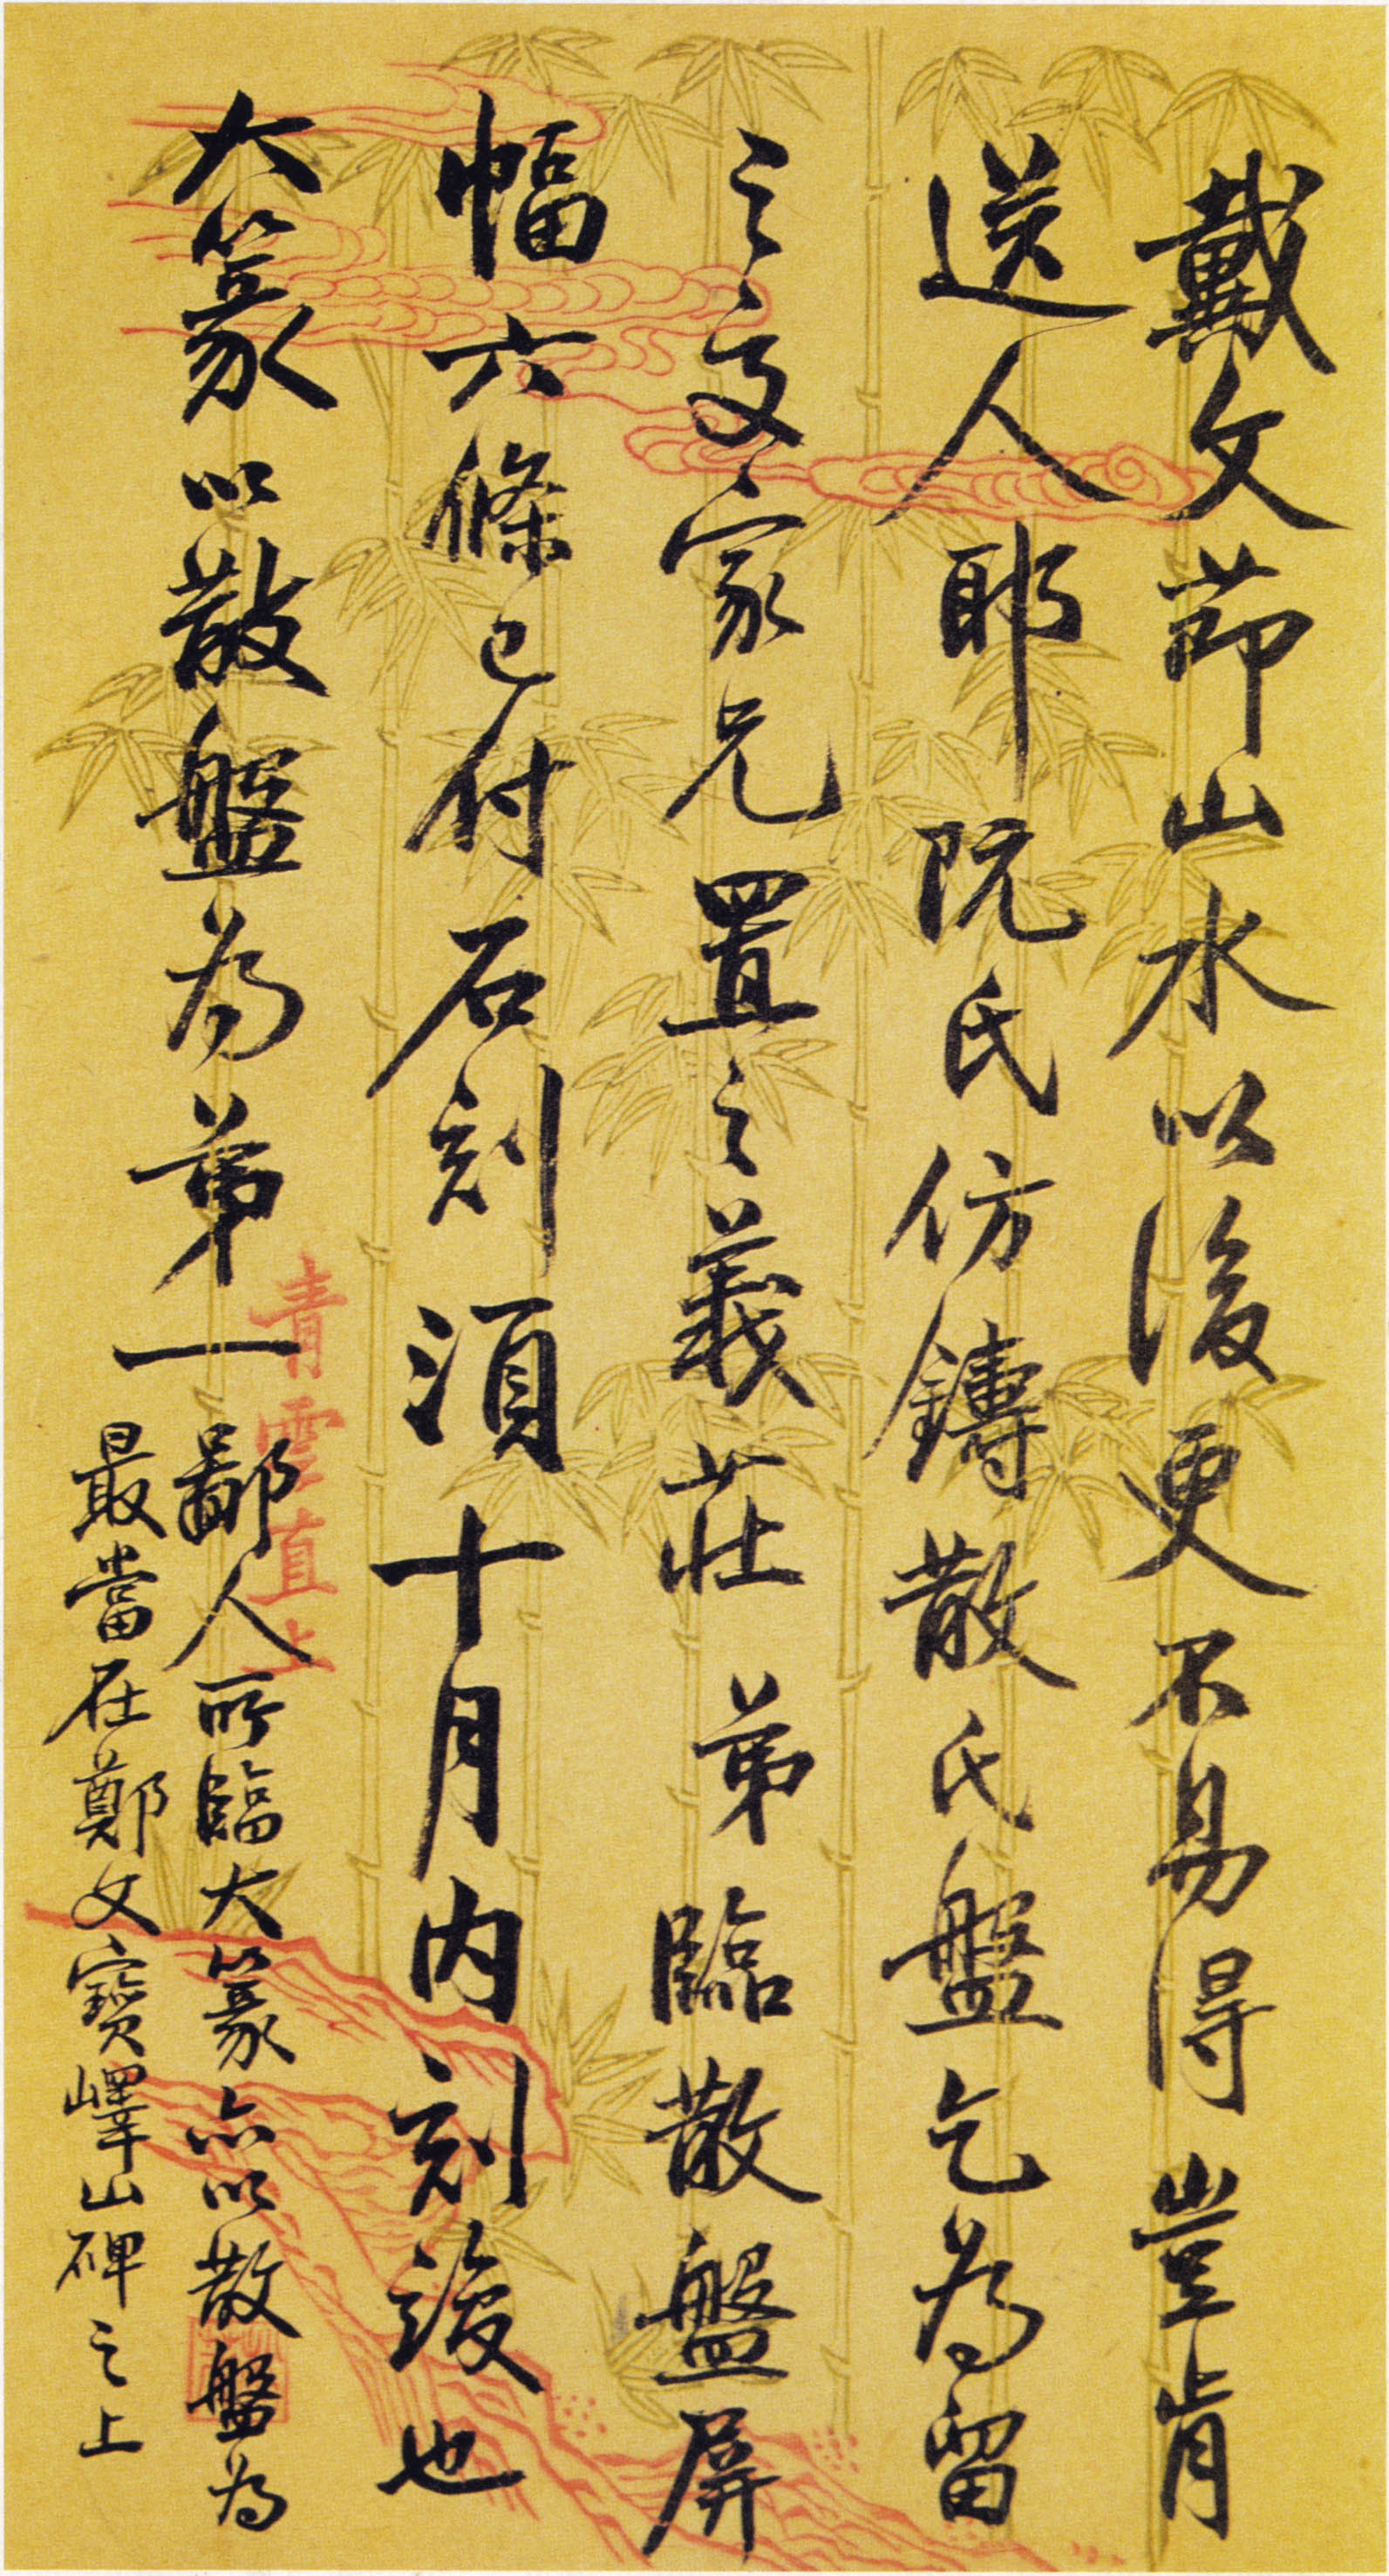 戴文節山水以後更不易得豈肯
送人耶阮氏仿鑄散氏盤乞為留
之交家兄置之義莊弟臨散盤屏
幅六條已付石刻須十月內刻竣也
大篆以散盤為第一
鄙人所臨大篆亦以散盤為
最當在鄭文寶嶧山碑之上
青雲直上